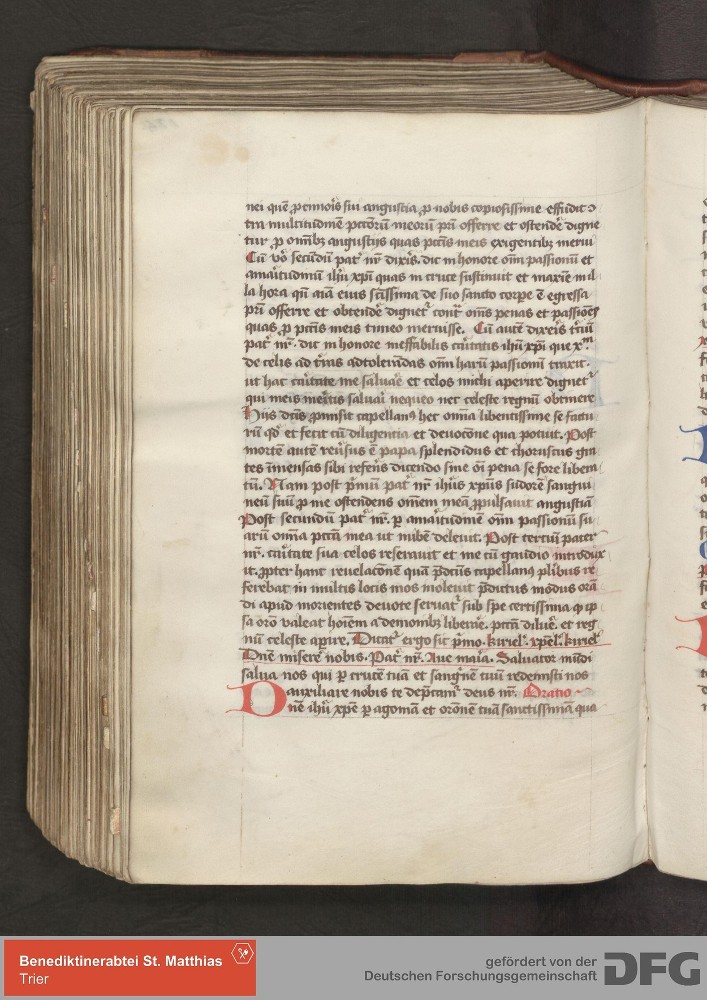 nei quē p̄ timor̄s sui angustia ꝓ nobis copiosissime effudit ↄ
tra multitudinē pctōrū meorū pri offerre et ostendē digne
tur ꝓ omībꝫ angustijs quas pctīs meis exigentibꝫ merui
Cū vō secundū pat̄ nr̄ dixīs. dic in honore oīm passionū et
amaītudinū ihū xpī quas in cruce sustinuit et maxīe in il
la hora qn̄ aīa eius sctīssima de suo sancto corpe ē egressa
pri offerre et obtendē dignet᷑ cont̄ oms penas et passiones
quas ꝓ pctīs meis timeo meruisse. Cū autē dixeis tciū
pat̄ nr̄. dic in honore ineffabilis caītatis ihū xpī que x̄m
de celis ad t̄ras ad tolerandas oīm harū passionū traxit.
ut hac caītate me saluaē et celos michi aperire dignet᷑
qui meis meītis saluaī nequeo nec celeste regnū obtinere
Hijs dcīs ꝓmisit capellanꝰ hec omīa libentissime se factu
rū qđ et fecit cū diligentia et deuocōne qua potuit. Post
mortē autē reūsus ē papa splendidus et choruscus gra
tes īmensas sibi referēs dicendo sine oī pena se fore libera
tū. Nam post p̄mū pat̄ nr̄ ihūs xpūs sudorē sangui
neū suū ꝓ me ostendens omnem meā ꝓpulsauit angustiā
Post secundū pat̄ nr̄. ꝑ amaītudinē oīm passionū su
arū omīa pctā mea ut nubē deleuit. Post terciū pater
nr̄. caītate sua celos reserauit et me cū gaudio introdux
it. ꝓpter hanc reuelacōnē quā p̄dctūs capellanꝰ pluībus re
ferebat in multis locis mos inoleuit p̄dictus modus orā
di apud morientes deuote seruat᷑ sub spe certissima q ip
sa orō valeat hoīem a demonibꝫ liberāe. pctā dilueē. et reg
nū celeste apire. Dicat᷑ ergo sic p̄mo. kiriel̄. xp̄el̄. kiriel̄
Dnē miserē nobis. Pat̄ nr̄. Aue maīa. Saluator mūdi
salua nos qui ꝑ crucē tuā et sangnē tuū redemisti nos
auxiliare nobis te dep̄camˀ deus nr̄. Oratio
Dnē ihū xpē ꝑ agoniā et orōnē tuā sanctissimā qua
Benediktinerabtei St. Matthias
Trier
gefördert von der
Deutschen Forschungsgemeinschaft
DFG